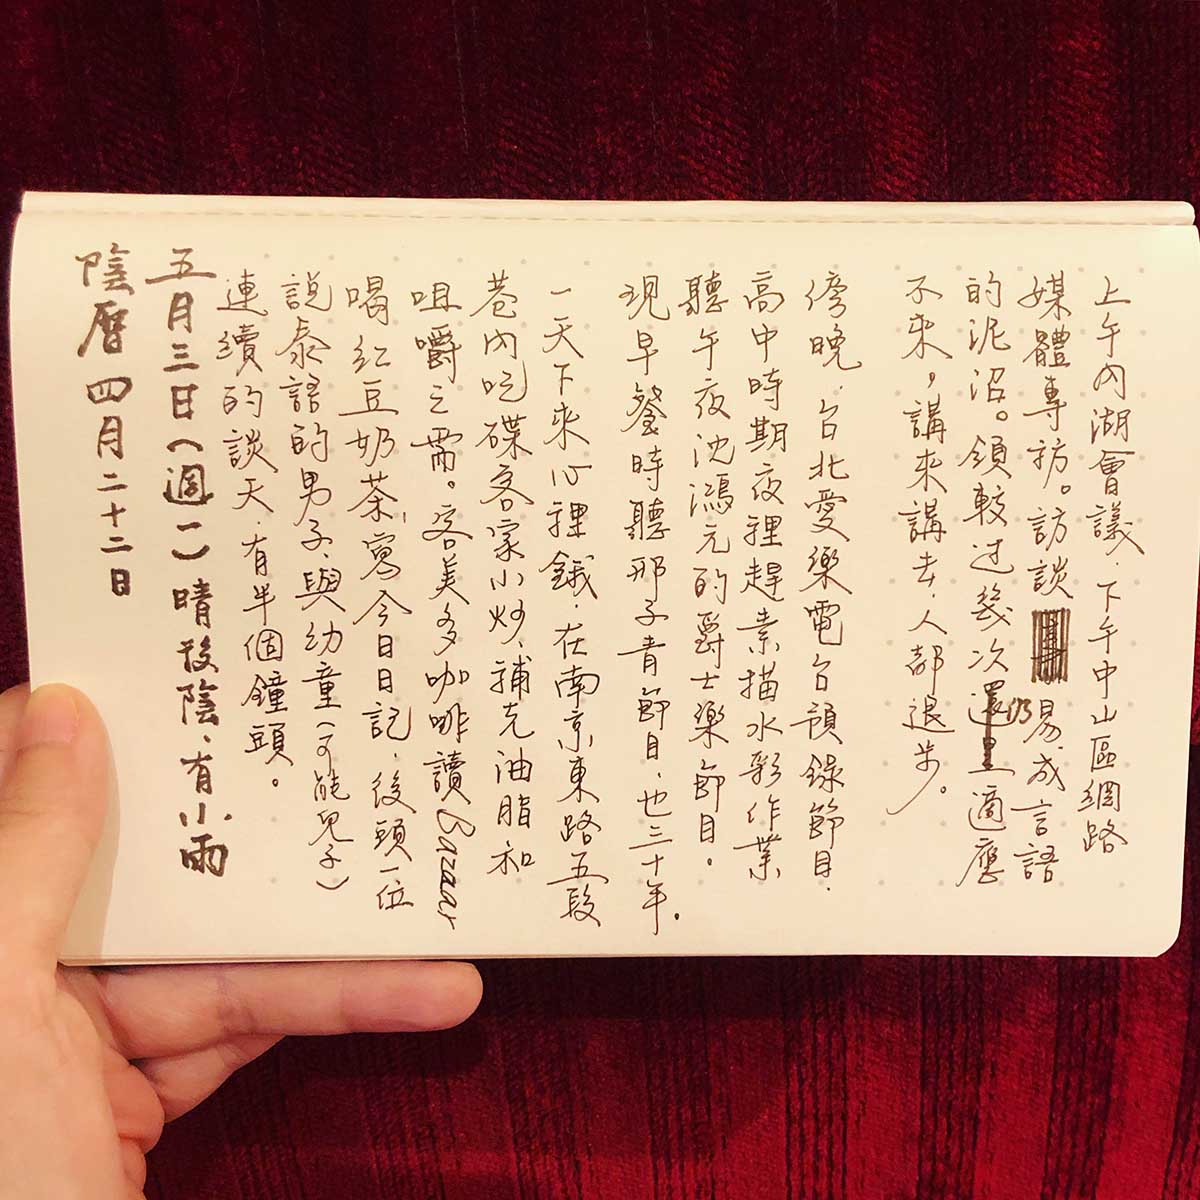 上午內湖會議、下午中山區網路
媒體專訪。訪談易成言語
的泥沼。領較过幾次還仍適應
不來，講來講去，人都退步。
傍晚、台北愛樂電台預錄節目、
高中時期夜裡趕素描水彩作業
聽午夜沈鴻元的爵士樂節目。
現早餐時聽邢子青節目、也三十年。
一天下來心裡餓、在南京東路五段
巷內吃碟客家小炒、補充油脂和
咀嚼之需。客美多咖啡讀Bazaar
喝紅豆奶茶、寫今日日記、後頭一位
說泰語的男子、與幼童（可能兒子）
連續的談天、有半個鐘頭。
五月三日（週一）晴後陰、有小雨
陰曆 四月二十二日